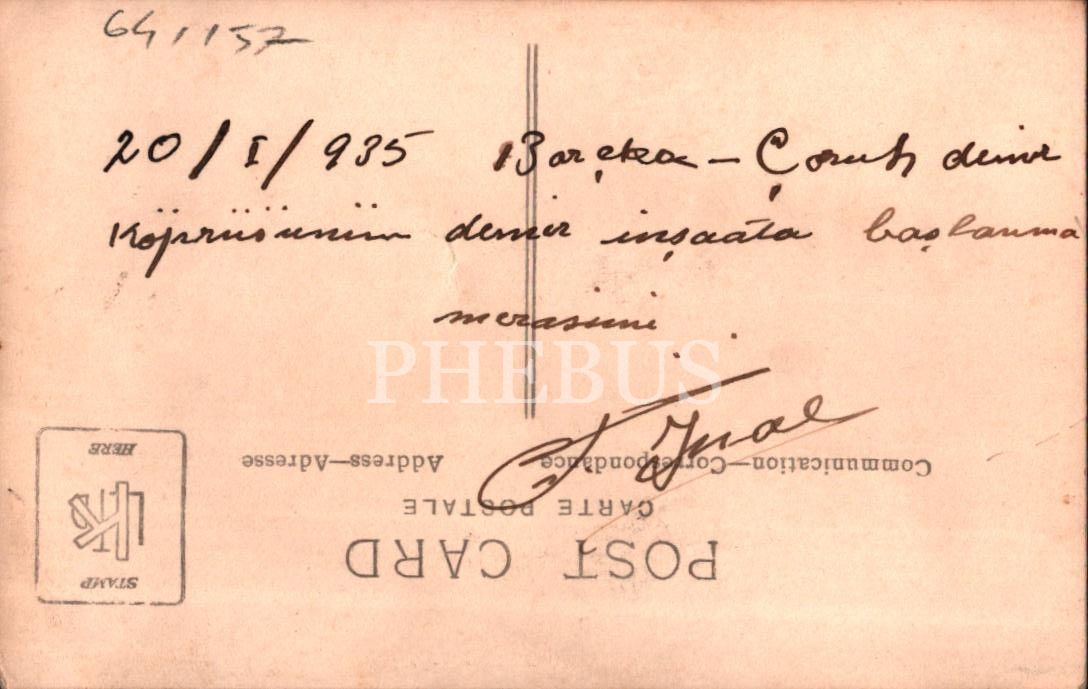 641157
20/I/935 Borçka – Çoruh demir
Köprüsünün demir inşaata başlanma
merasimi
PHEBUS
F. İnal
Communication—Correspondance
Address—Adresse
CARTE POSTALE
POST CARD
STAMP
HERE